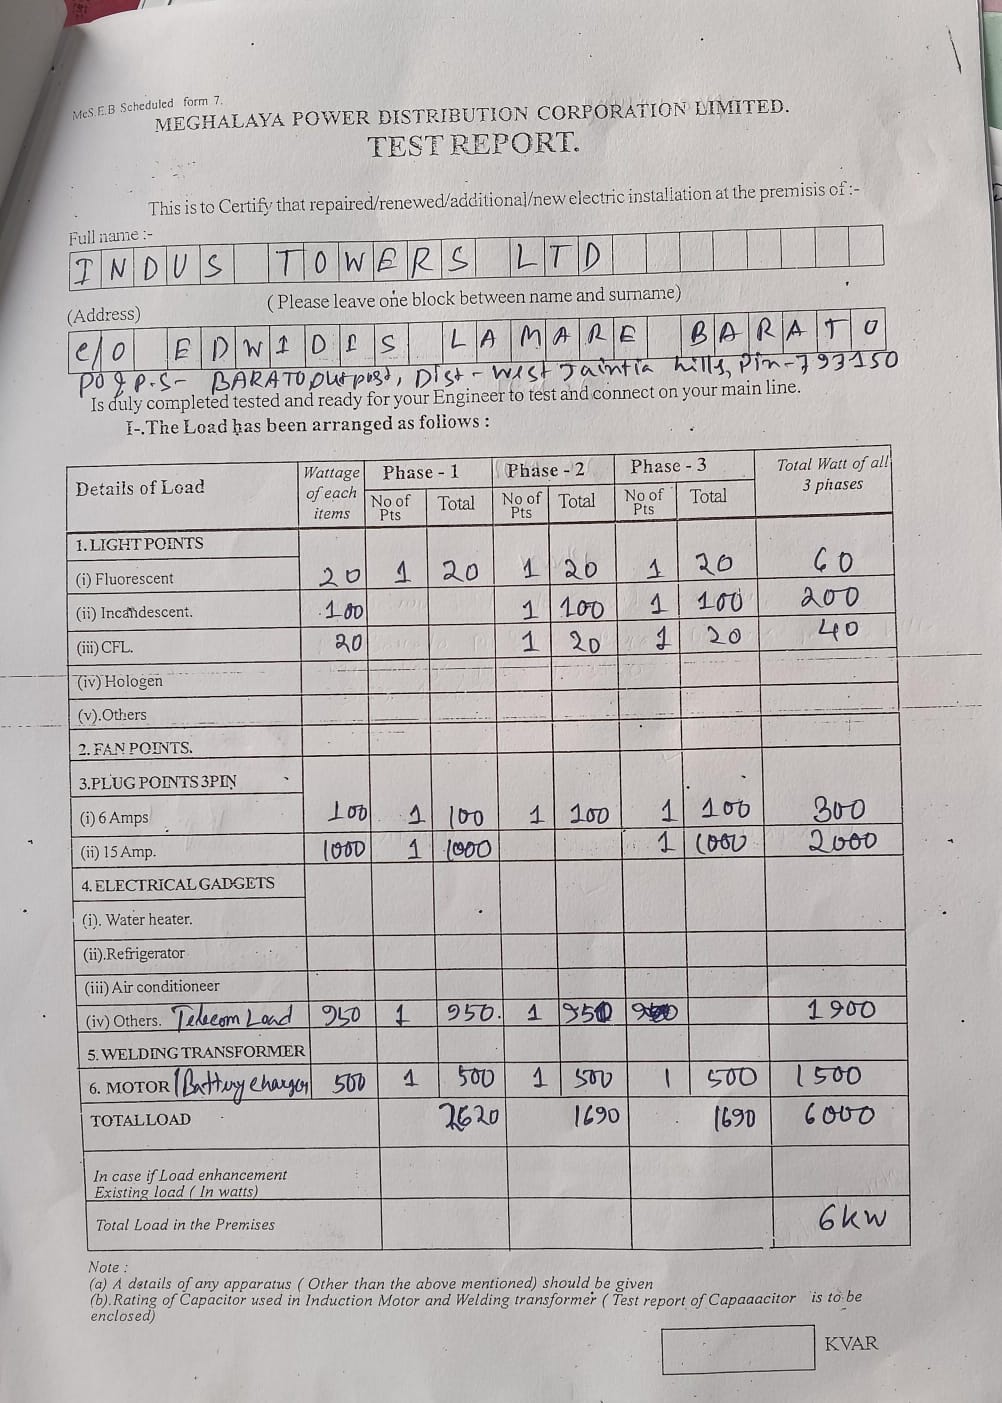 MeS.E.B Scheduled form 7.
MEGHALAYA POWER DISTRIBUTION CORPORATION LIMITED.
TEST REPORT.
This is to Certify that repaired/renewed/additional/new electric installation at the premisis of :-
Full name :-
INDUS TOWERS LTD
( Please leave one block between name and surname)
(Address)
C/O EDWIDIS LAMARE BARATO
PO & P.S- BARATO outpost, Dist - West Jaintia hills, Pin-793150
Is duly completed tested and ready for your Engineer to test and connect on your main line.
I-.The Load has been arranged as follows :
Details of Load Wattage of each items Phase - 1 Phase - 2 Phase - 3 Total Watt of all 3 phases
No of Pts Total No of Pts Total No of Pts Total
1. LIGHT POINTS
(i) Fluorescent 20 1 20 1 20 1 20 60
(ii) Incandescent. 100 1 100 1 100 200
(iii) CFL. 20 1 20 1 20 40
(iv) Hologen
(v).Others
2. FAN POINTS.
3.PLUG POINTS 3PIN
(i) 6 Amps 100 1 100 1 100 1 100 300
(ii) 15 Amp. 1000 1 1000 1 1000 2000
4. ELECTRICAL GADGETS
(i). Water heater.
(ii).Refrigerator
(iii) Air conditioneer
(iv) Others. Telecom Load 950 1 950. 1 950 1900
5. WELDING TRANSFORMER
6. MOTOR / Battery charger 500 1 500 1 500 1 500 1500
TOTAL LOAD 2620 1690 1690 6000
In case if Load enhancement
Existing load ( In watts)
Total Load in the Premises 6kw
Note :
(a) A details of any apparatus ( Other than the above mentioned) should be given
(b).Rating of Capacitor used in Induction Motor and Welding transformer ( Test report of Capaaacitor is to be
enclosed)
KVAR